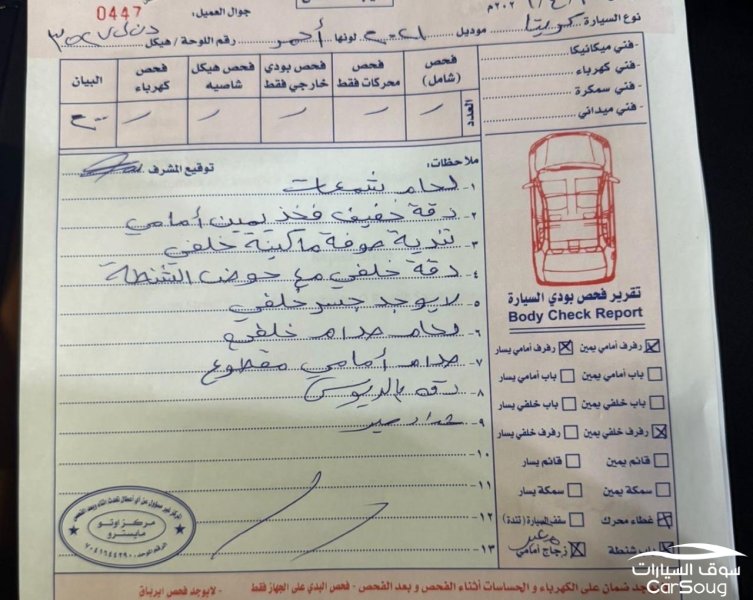 0447
جوال العميل:
نوع السيارة تويوتا موديل ٢٠٢١ لونها أحمر رقم اللوحة / هيكل
- فني ميكانيكا
- فني كهرباء
- فني سمكرة
- فني ميداني
فحص (شامل) فحص محركات فقط فحص بودي خارجي فقط فحص هيكل شاصيه فحص كهرباء البيان
العدد
ملاحظات: توقيع المشرف
١- لحام شمعات
٢- دقة خفيف فخذ يمين أمامي
٣- تندية صوفة ماكينة خلفي
٤- دقة خلفي مع حوض الشنطة
٥- لا يوجد جسر خلفي
٦- لحام صدام خلفي
٧- صدام أمامي مقطوع
٨- دقه بالديوس
٩-
١٠-
١١-
١٢-
١٣-
تقرير فحص بودي السيارة
Body Check Report
رفرف أمامي يمين رفرف أمامي يسار
باب أمامي يمين باب أمامي يسار
باب خلفي يمين باب خلفي يسار
رفرف خلفي يمين رفرف خلفي يسار
قائم يمين قائم يسار
سمكة يمين سمكة يسار
غطاء محرك سقف السيارة (تندة)
باب شنطة زجاج أمامي
المركز غير مسؤول عن أي أعطال تحدث أثناء وبعد الفحص
مركز اوتو مايسترو
جد ضمان على الكهرباء و الحساسات أثناء الفحص و بعد الفحص - فحص البدي على الجهاز فقط - لايوجد فحص ايرباق
سوق السيارات
CarSoug